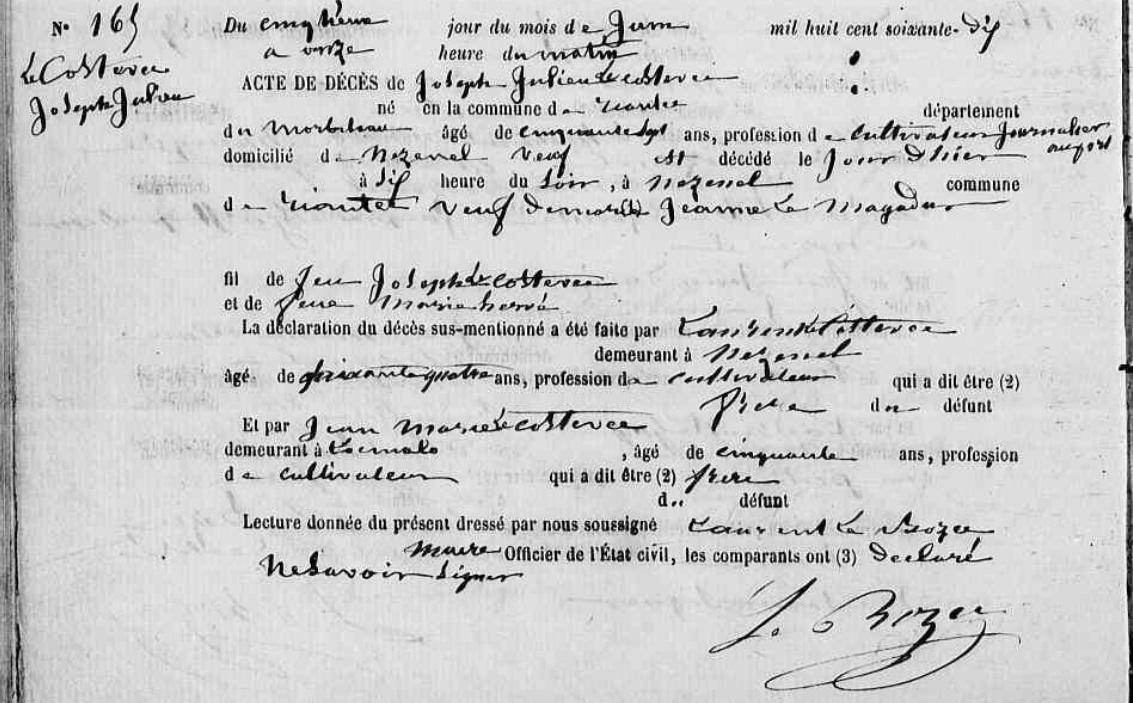 N° 165
Le Costevec
Joseph Julien
Du cinquieme jour du mois de Juin mil huit cent soixante-dix
a onze heure du matin
ACTE DE DÉCÈS de Joseph Julien Le Costevec
né en la commune de riantec département
du Morbihan âgé de cinquante sept ans, profession de cultivateur Journalier
au port
domicilié de Nezenel veuf est décédé le Jour d'hier
à dix heure du soir, à Nezenel commune
de riantec veuf de marie Jeanne Le Magadur
fil de feu Joseph Le Costevec
et de feue Marie hervé
La déclaration du décès sus-mentionné a été faite par Laurent le Costevec
demeurant à Nezenel
âgé de quatre ans, profession de cultivateur qui a dit être (2)
frere du défunt
Et par Jean Marie Le Costevec
demeurant à , âgé de cinquante ans, profession
de cultivateur qui a dit être (2) frere
du défunt
Lecture donnée du présent dressé par nous soussigné Laurent Le Rozec
Maire Officier de l'État civil, les comparants ont (3) declaré
Ne Savoir Signer
L. Rozec